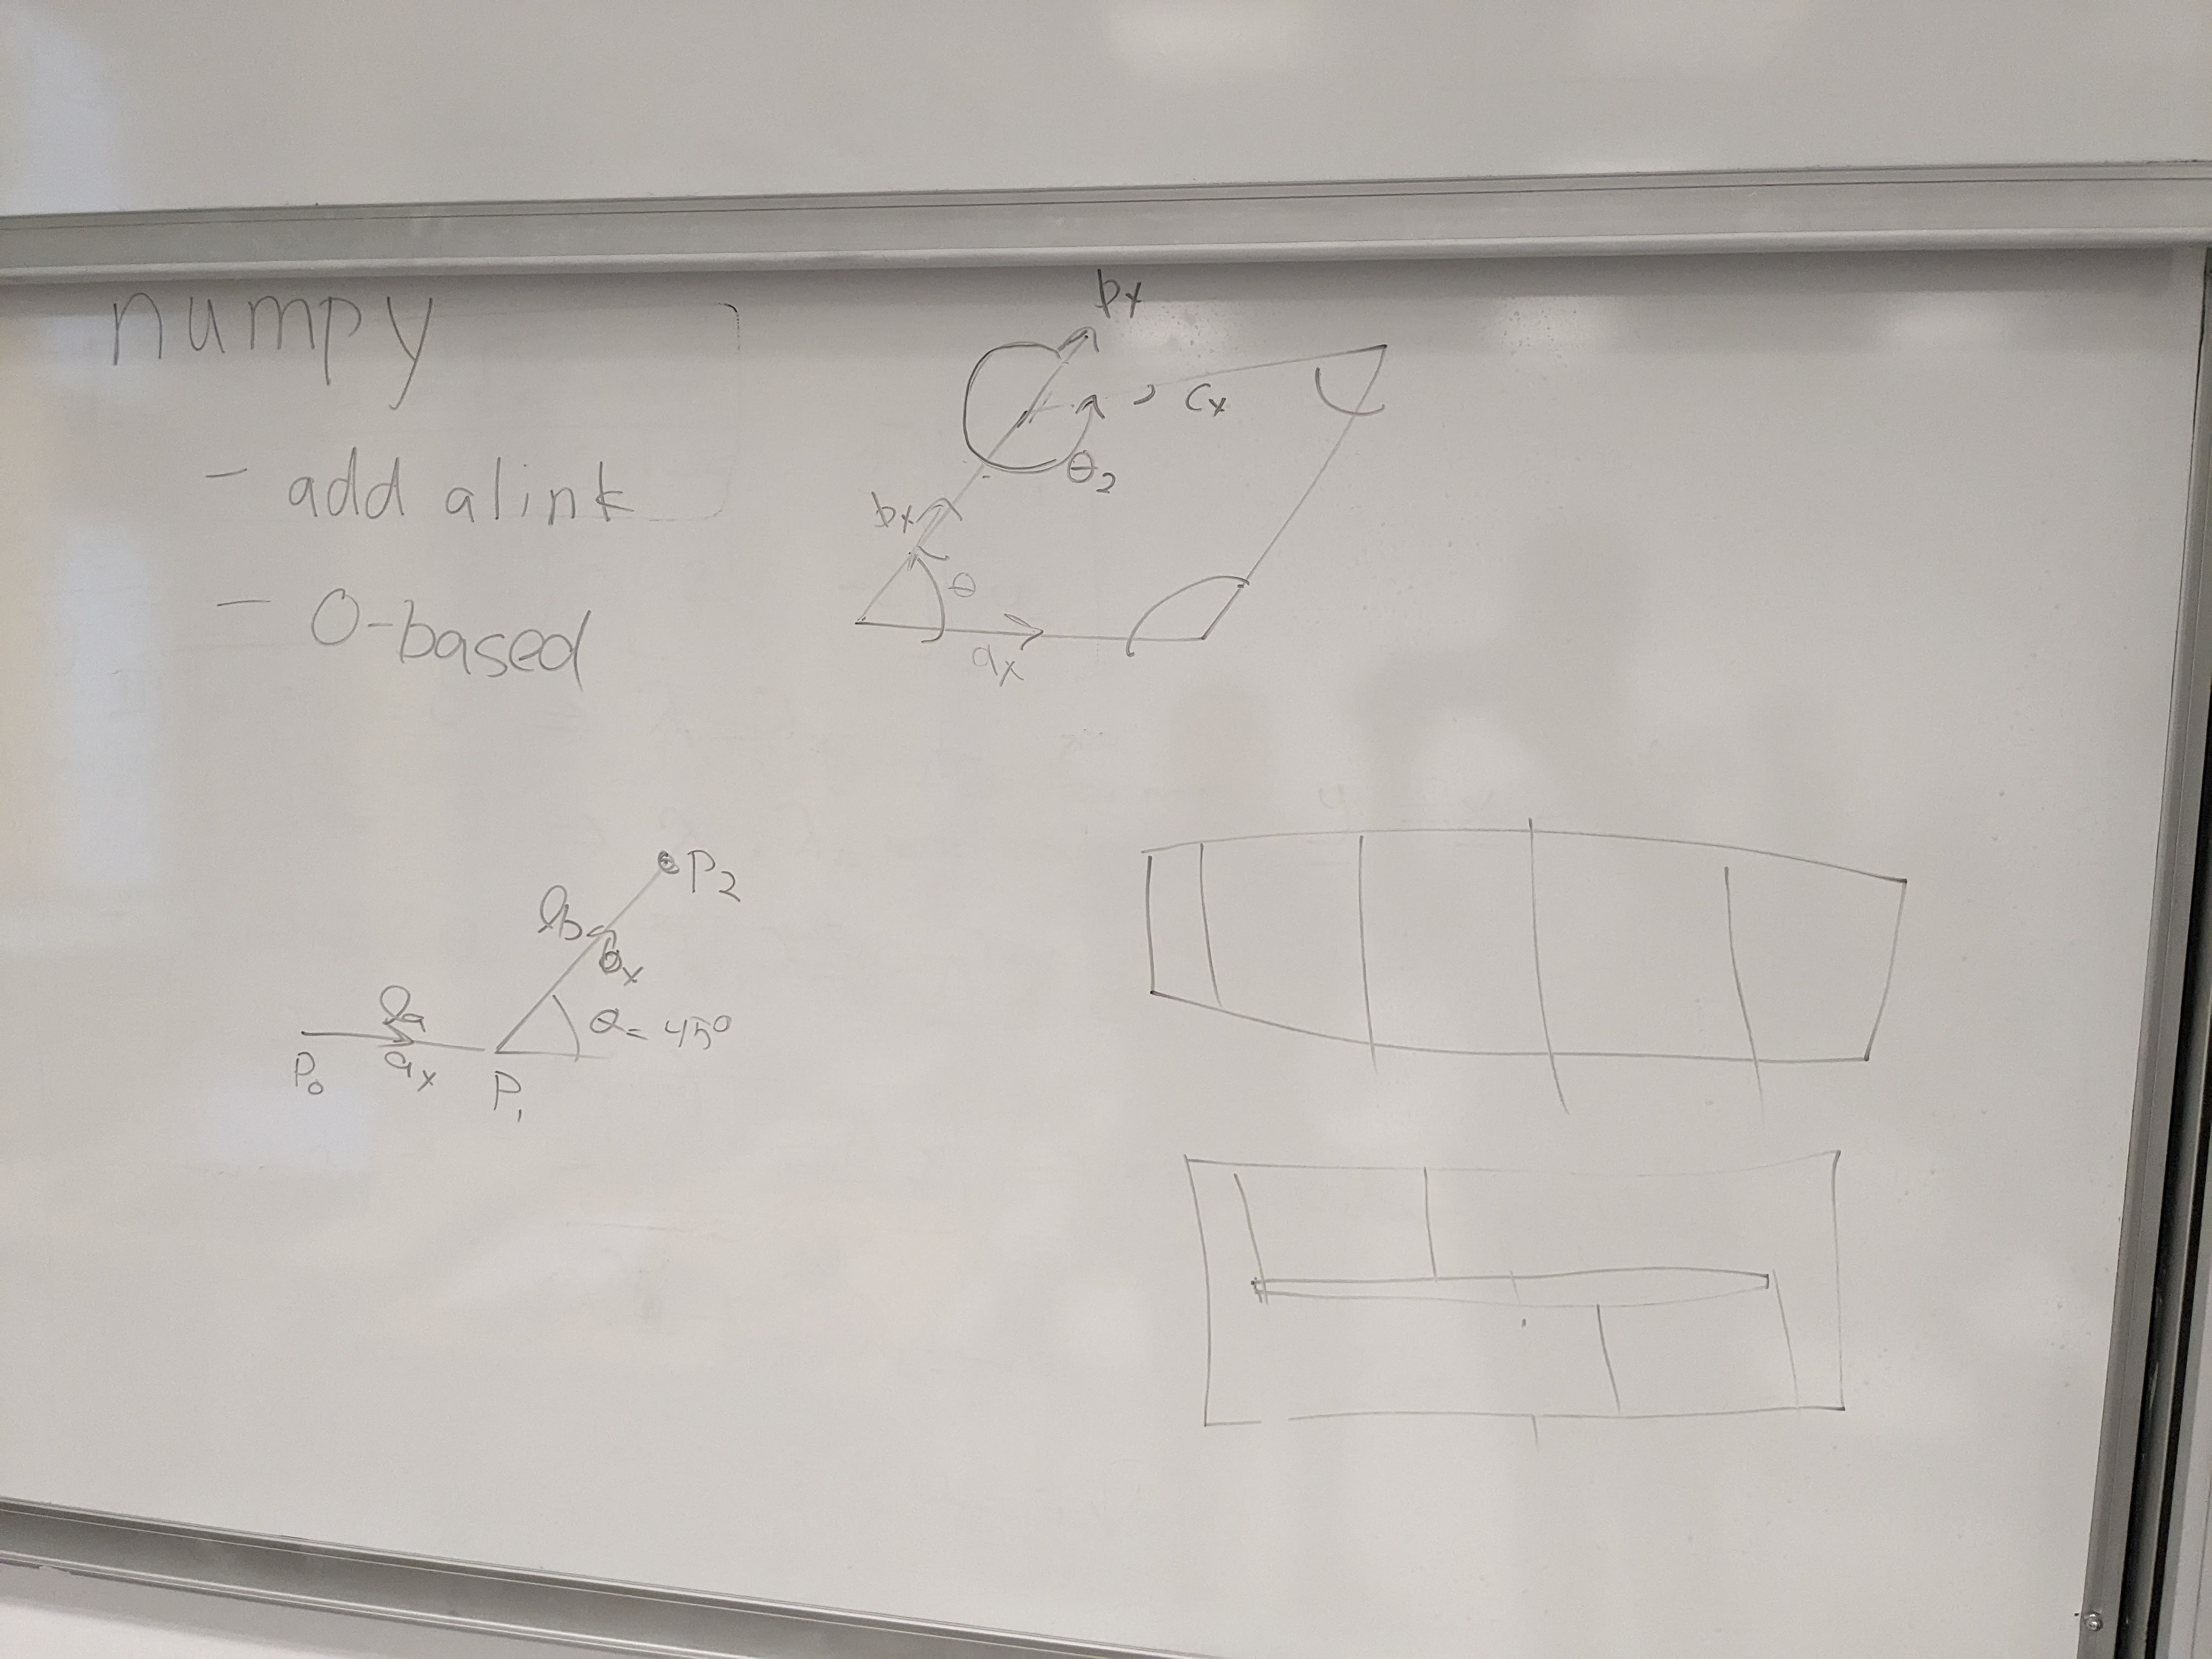 numpy
- add a link
- 0-based
bx
cx
θ2
bx
θ
ax
P2
lb
bx
la
θ = 45°
ax
P0
P1